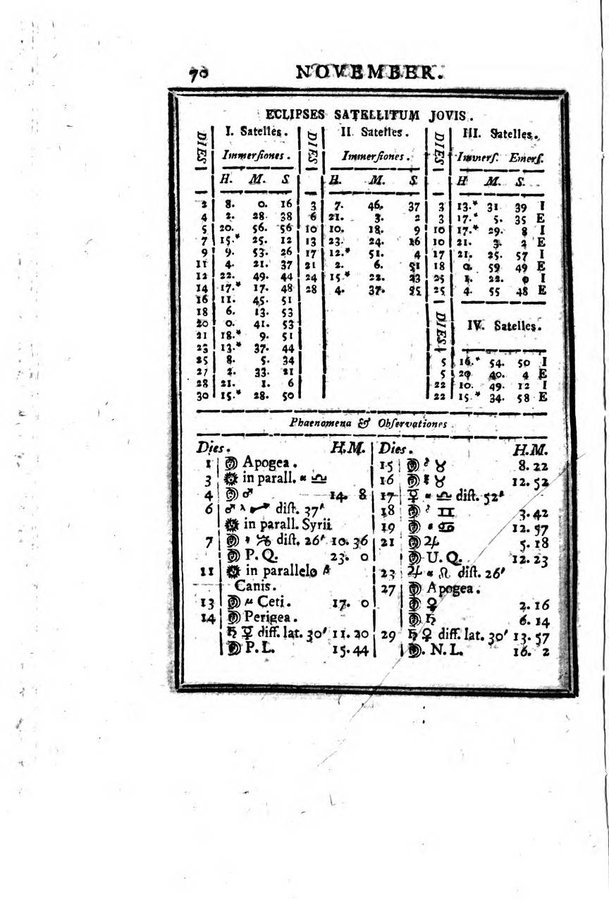 70 NOVEMBER.
ECLIPSES SATELLITUM JOVIS.
DIES I. Satelles. DIES II Satelles. DIES III. Satelles.
Immersiones. Immersiones. Immers. Emers.
H. M. S. H. M. S. H M. S.
2 8. 0. 16 3 7. 46. 37 3 13.* 31 39 I
4 2. 28 38 6 21. 3. 2 3 17.* 5. 35 E
5 20. 56. 56 10 10. 18. 9 10 17.* 29. 8 I
7 15.* 25. 12 13 23. 24. 26 10 21. 3. 2 E
9 9. 53. 26 17 12.* 51. 4 17 21. 25. 57 I
11 4. 21. 37 21 2. 6. 51 18 0. 59 49 E
12 22. 49. 44 24 15.* 22. 23 25 1. 22. 0 I
14 17.* 17. 48 28 4. 37. 25 25 4. 55 48 E
16 11. 45. 51
18 6. 13. 53
20 0. 41. 53 DIES IV. Satelles.
21 18.* 9. 51
23 13.* 37. 44
25 8. 5. 34 5 16.* 54. 50 I
27 2. 33. 21 5 20 40. 4 E
28 21. 1. 6 22 10. 49. 12 I
30 15.* 28. 50 22 15.* 34. 58 E
Phaenomena & Observationes
Dies. H.M.
1 ☽ Apogea.
3 ☼ in parall. α ♎
4 ☽ ♂ 14. 8
6 ♂ λ ♐ dist. 37'
☼ in parall. Syrii
7 ☽ ♑ dist. 26' 10. 36
☽ P. Q. 23. 0
11 ☼ in parallelo
Canis.
13 ☽ μ Ceti. 17. 0
14 ☽ Perigea.
♄ ♀ diff. lat. 30' 11. 20
☽ P. L. 15. 44
Dies. H.M.
15 ☽ ♉ 8. 22
16 ☽ ♉ 12. 52
17 ♀ α ♎ dist. 52'
18 ☽ ♊ 3. 42
19 ☽ ♋ 12. 57
21 ☽ ♃ 5. 18
☽ U. Q. 12. 23
23 ♃ α ♌ dist. 26'
27 ☽ Apogea.
☽ ♀ 2. 16
☽ ♄ 6. 14
29 ♄ ♀ diff. lat. 30' 13. 57
☽. N. L. 16. 2